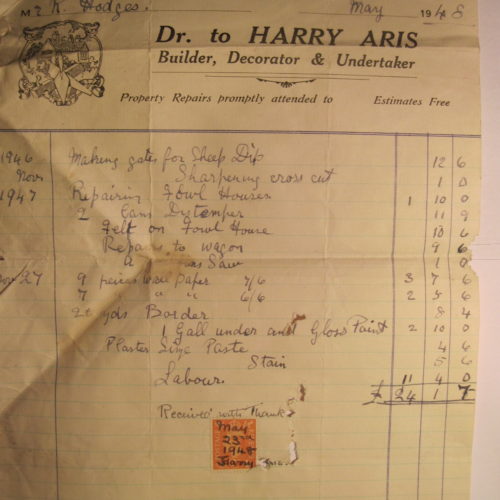 Mr K. Hodges. May 1948
Dr. to HARRY ARIS
Builder, Decorator & Undertaker
Property Repairs promptly attended to Estimates Free
1946 Making gates for Sheep Dip 12 6
Novr Sharpening cross cut 1 0
1947 Repairing Fowl Houses 1 10 0
2 Cans Distemper 11 9
Felt on Fowl House 10 6
Repairs to wagon 9 6
Saw 1 0
27 9 peices Wall Paper 7/6 3 7 6
7 " " 6/6 2 5 6
yds Border 8 4
1 Gall under and Gloss Paint 2 10 0
Plaster Size Paste 4 6
Stain 5 6
Labour. 11 4 0
£ 24 1 7
Received with Thanks
May
23rd
1948
Harry